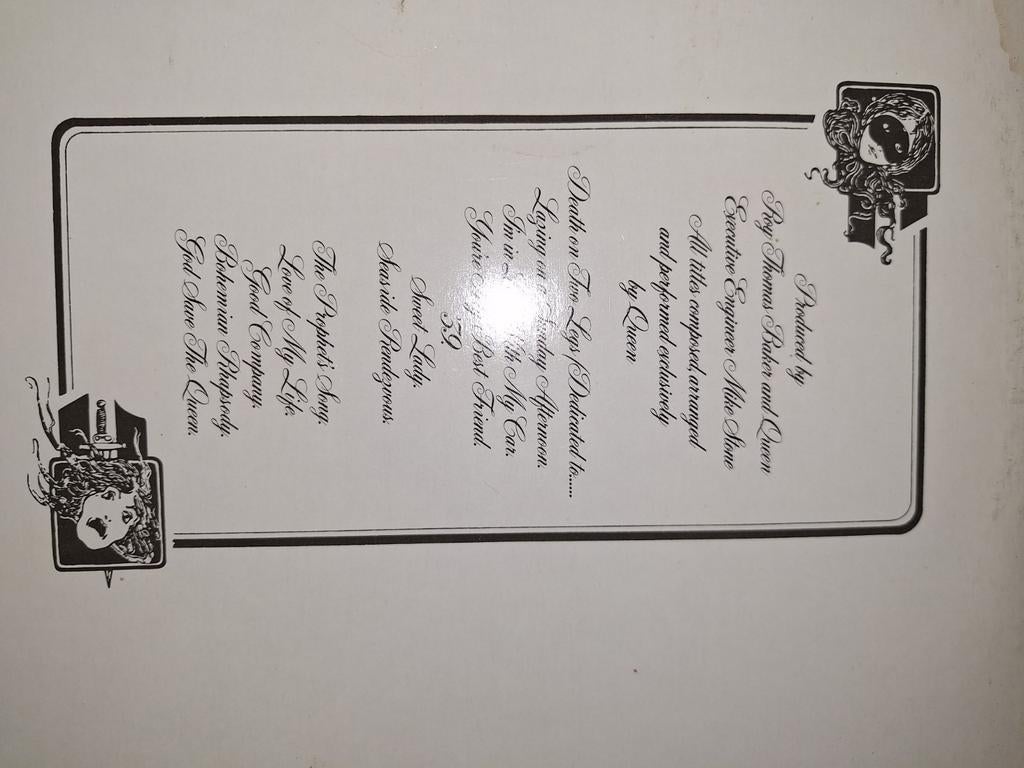 Produced by
Roy Thomas Baker and Queen
Executive Engineer Mike Stone
All titles composed, arranged
and performed exclusively
by Queen
Death on Two Legs (Dedicated to......
Lazing on a Sunday Afternoon.
I'm in Love with My Car.
You're My Best Friend.
39
Sweet Lady.
Seaside Rendezvous.
The Prophet's Song.
Love of My Life.
Good Company.
Bohemian Rhapsody.
God Save The Queen.